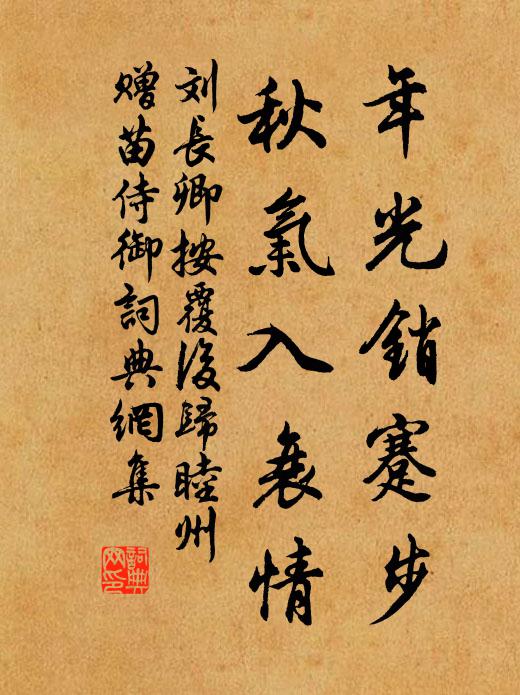 年光銷蹇步
秋氣入衰情
刘長卿按覆後歸睦州
贈苗侍御詞典網集
詞典
网印